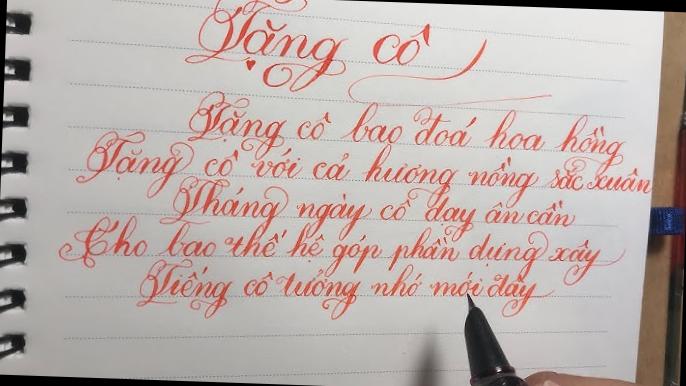 Tặng cô
Tặng cô bao đoá hoa hồng
Tặng cô với cả hương nồng sắc xuân
Tháng ngày cô dạy ân cần
Cho bao thế hệ góp phần dựng xây
Tiếng cô tưởng nhớ mới đây